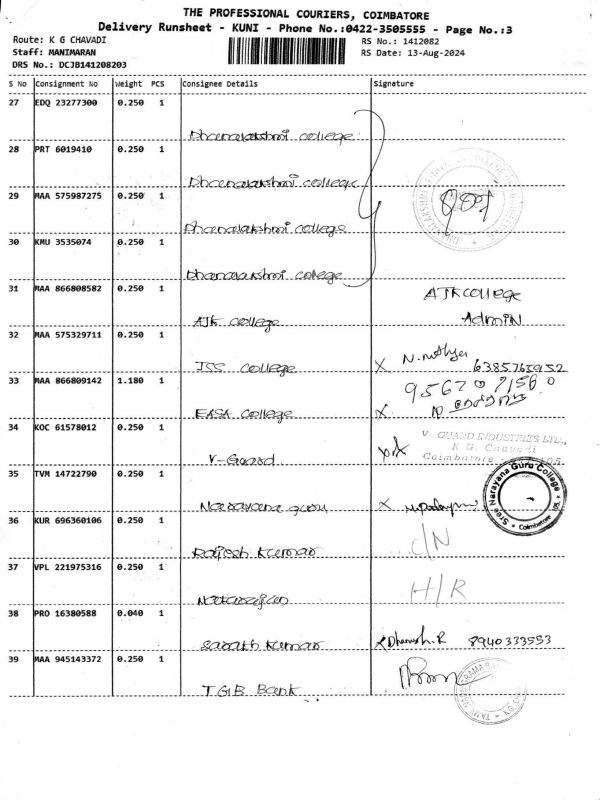 THE PROFESSIONAL COURIERS, COIMBATORE
Delivery Runsheet - KUNI - Phone No.:0422-3505555 - Page No.:3
Route: K G CHAVADI
RS No.: 1412082
Staff: MANIMARAN
RS Date: 13-Aug-2024
DRS No.: DCJB141208203
S No Consignment No Weight PCS Consignee Details Signature
27 EDQ 23277300 0.250 1
Dhanalakshmi college
28 PRT 6019410 0.250 1
Dhanalakshmi college
29 MAA 575987275 0.250 1
Dhanalakshmi college
30 KMU 3535074 0.250 1
Dhanalakshmi college
31 MAA 866808582 0.250 1
AJK college
AJK COLLEGE
Admin
32 MAA 575329711 0.250 1
JSS college
X
33 MAA 866809142 1.180 1
EASA college
X
34 KOC 61578012 0.250 1
V-Guard
V GUARD INDUSTRIES LTD.,
K G. Chavadi
Coimbatore
35 TVM 14722790 0.250 1
Narayana guru
X
Sree Narayana Guru College
Coimbatore
36 KUR 696360106 0.250 1
Rajesh Kumar
C/N
37 VPL 221975316 0.250 1
H/R
38 PRO 16380588 0.040 1
Sarath Kumar
X Dhanush.R 8940333553
39 MAA 945143372 0.250 1
TGB Bank